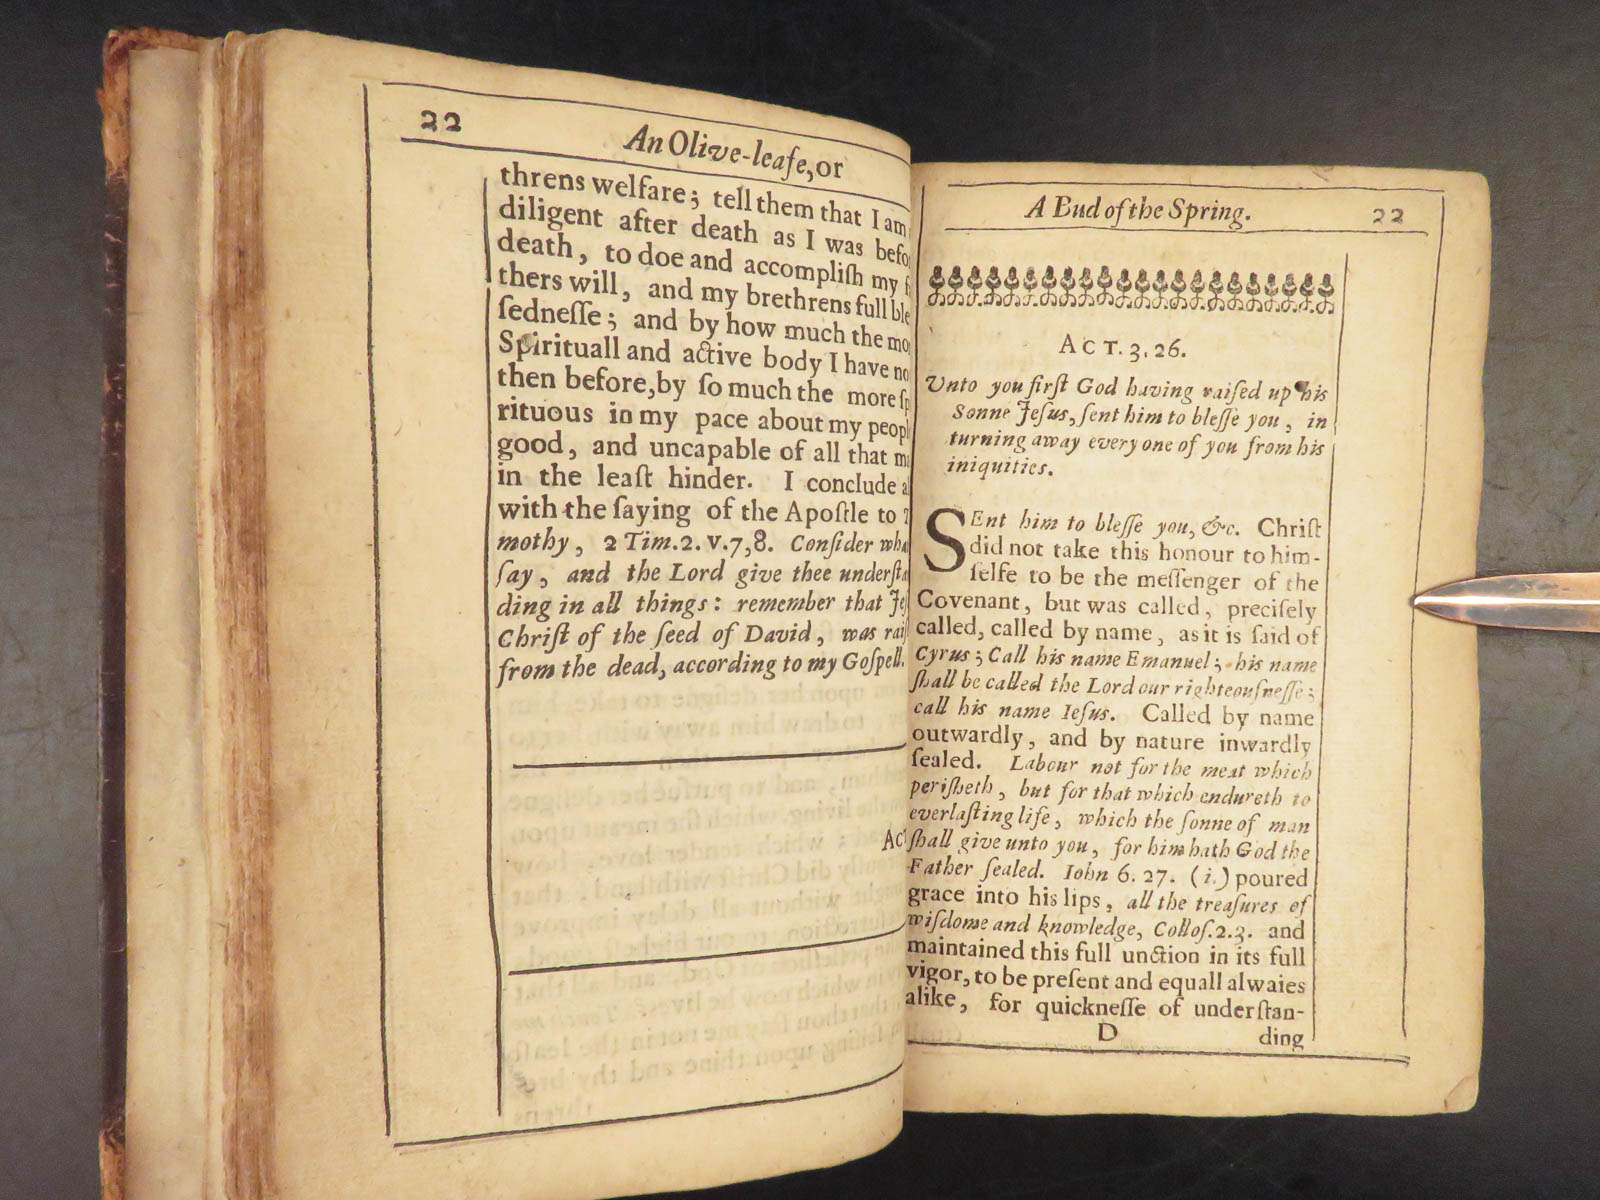 22
An Olive-leafe, or
threns welfare; tell them that I am
diligent after death as I was befo
death, to doe and accompliſh my f
thers will, and my brethrens full ble
ſedneſſe; and by how much the mo
Spirituall and active body I have no
then before, by ſo much the more ſp
rituous in my pace about my peopl
good, and uncapable of all that m
in the leaſt hinder. I conclude a
with the ſaying of the Apoſtle to T
mothy, 2 Tim. 2. v. 7, 8. Conſider wha
ſay, and the Lord give thee underſta
ding in all things: remember that Jeſ
Chriſt of the ſeed of David, was raiſ
from the dead, according to my Goſpell.
Act
A Bud of the Spring.
22
ACT. 3. 26.
Unto you firſt God having raiſed up his
Sonne Jeſus, ſent him to bleſſe you, in
turning away every one of you from his
iniquities.
SEnt him to bleſſe you, &c. Chriſt
did not take this honour to him-
ſelfe to be the meſſenger of the
Covenant, but was called, preciſely
called, called by name, as it is ſaid of
Cyrus; Call his name Emanuel; his name
ſhall be called the Lord our righteouſneſſe;
call his name Ieſus. Called by name
outwardly, and by nature inwardly
ſealed. Labour not for the meat which
periſheth, but for that which endureth to
everlaſting life, which the ſonne of man
ſhall give unto you, for him hath God the
Father ſealed. Iohn 6. 27. (i.) poured
grace into his lips, all the treaſures of
wiſdome and knowledge, Colloſ. 2. 3. and
maintained this full unction in its full
vigor, to be preſent and equall alwaies
alike, for quickneſſe of underſtan-
D
ding